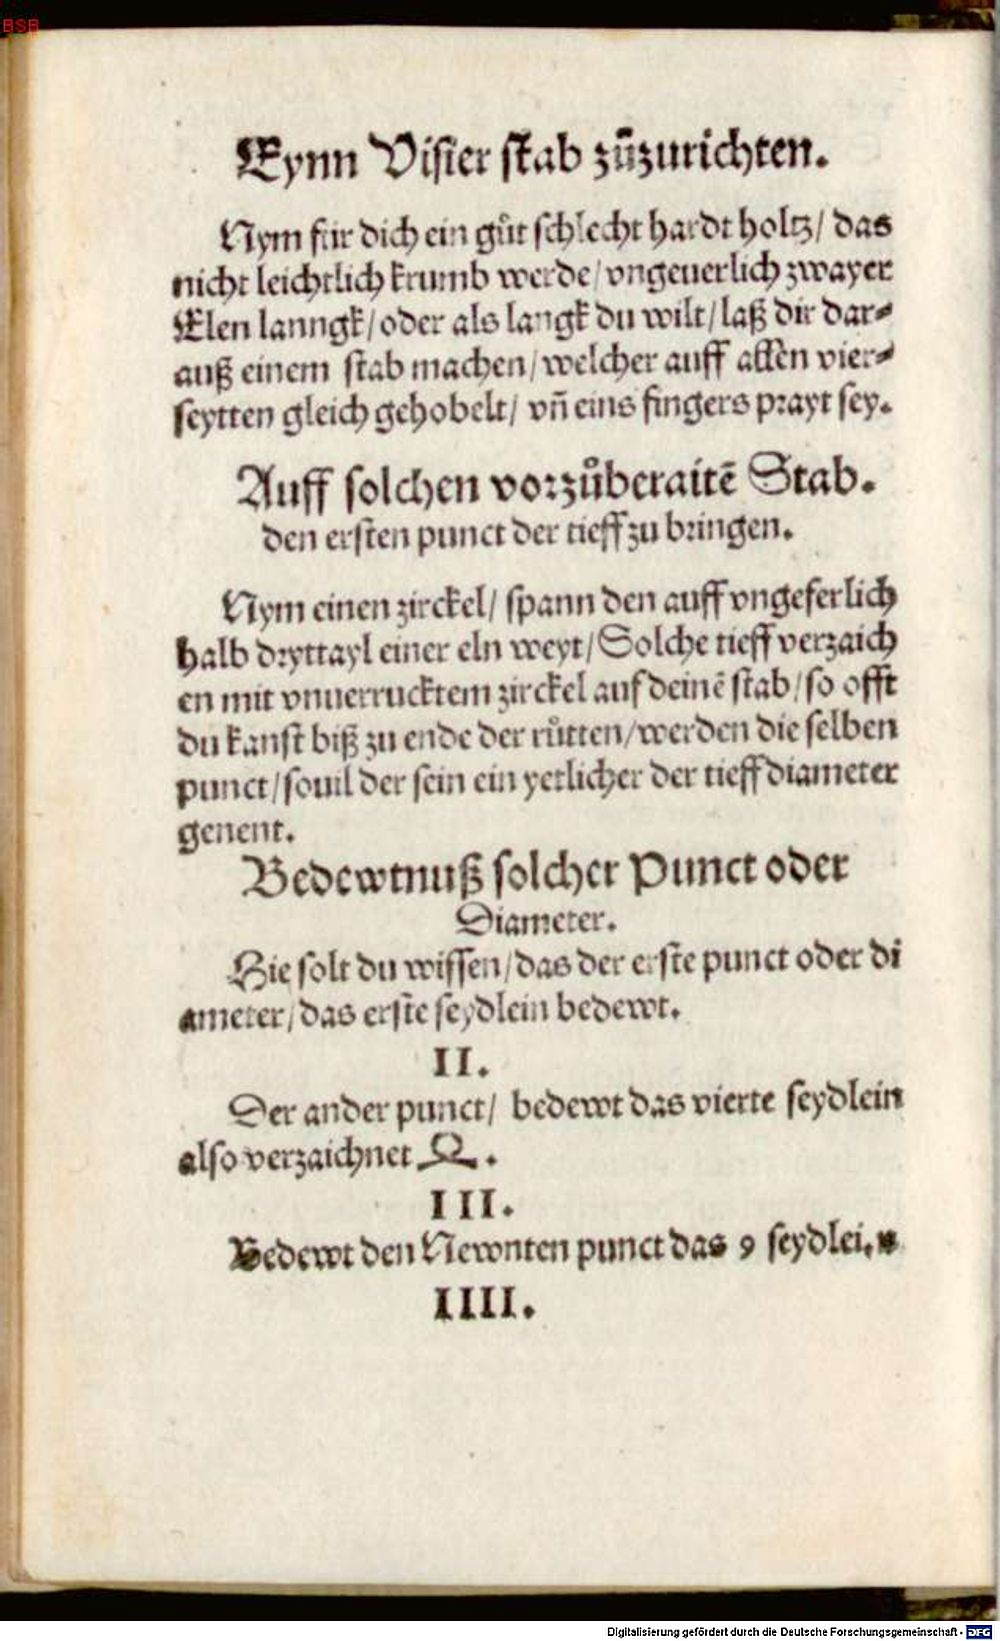 BSB
Eynn Visier stab zůzurichten.
Nym für dich ein gůt schlecht hardt holtz/ das
nicht leichtlich krumb werde/ vngeuerlich zwayer
Elen lanngk/ oder als langk du wilt/ laß dir dar⸗
auß einem stab machen/ welcher auff allen vier⸗
seytten gleich gehobelt/ vñ eins fingers prayt sey.
Auff solchen vorzůberaitẽ Stab.
den ersten punct der tieff zu bringen.
Nym einen zirckel/ spann den auff vngeferlich
halb dryttayl einer eln weyt/ Solche tieff verzaich
en mit vnuerrucktem zirckel auf deinẽ stab/ so offt
du kanst biß zu ende der růtten/ werden die selben
punct/ souil der sein ein yetlicher der tieff diameter
genent.
Bedewtnuß solcher Punct oder
Diameter.
Hie solt du wissen/ das der erste punct oder di
ameter/ das erste seydlein bedewt.
II.
Der ander punct/ bedewt das vierte seydlein
also verzaichnet .
III.
Bedewt den Newnten punct das 9 seydlei.n
IIII.
Digitalisierung gefördert durch die Deutsche Forschungsgemeinschaft - DFG